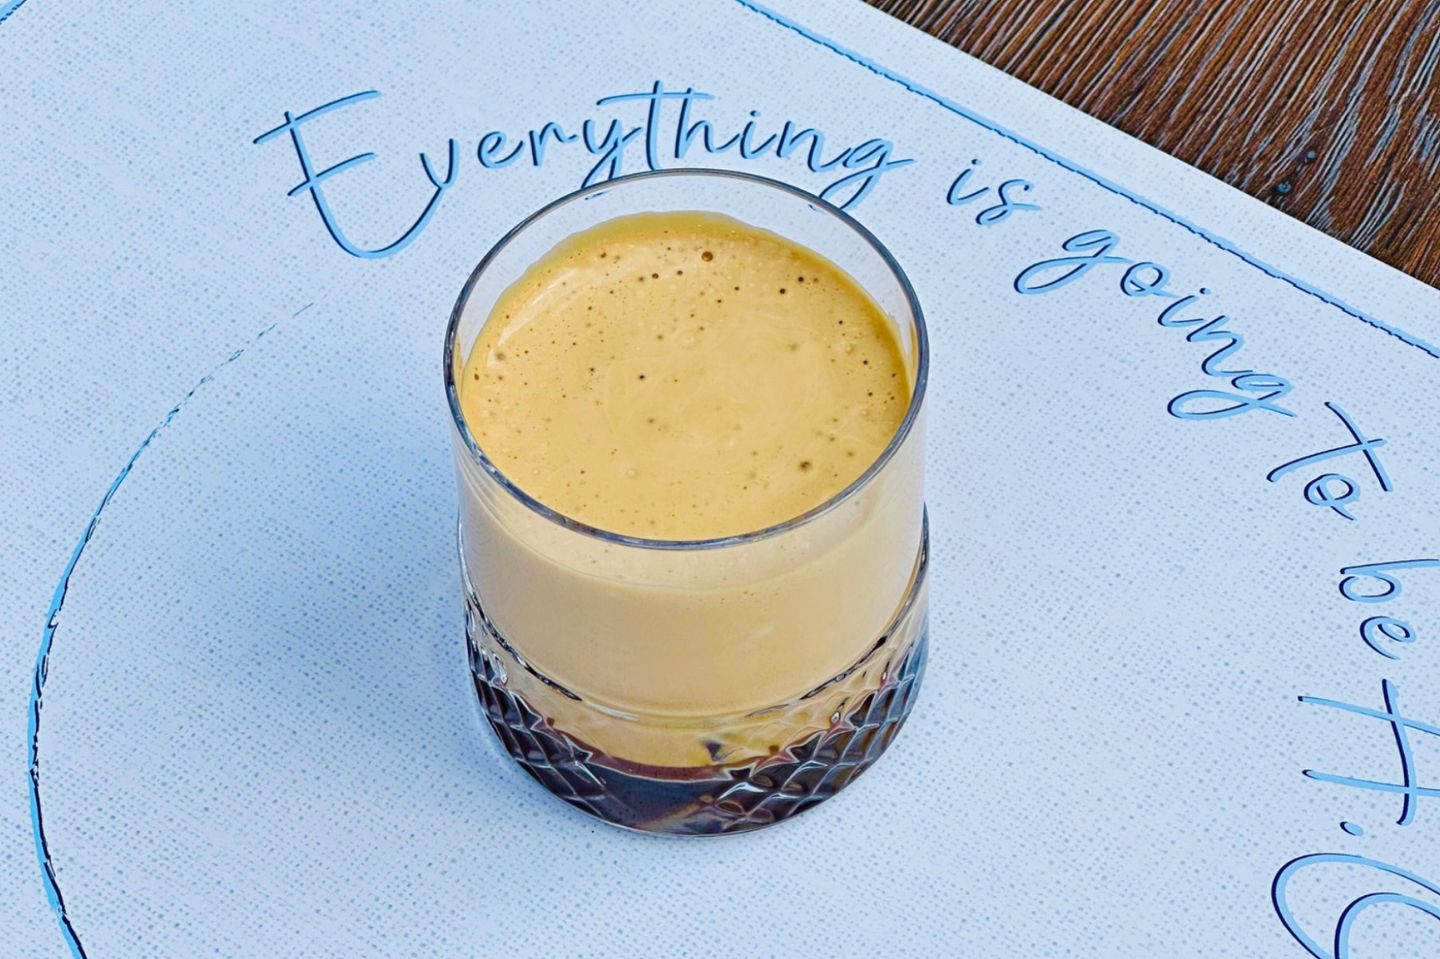 Everything is going to be H.